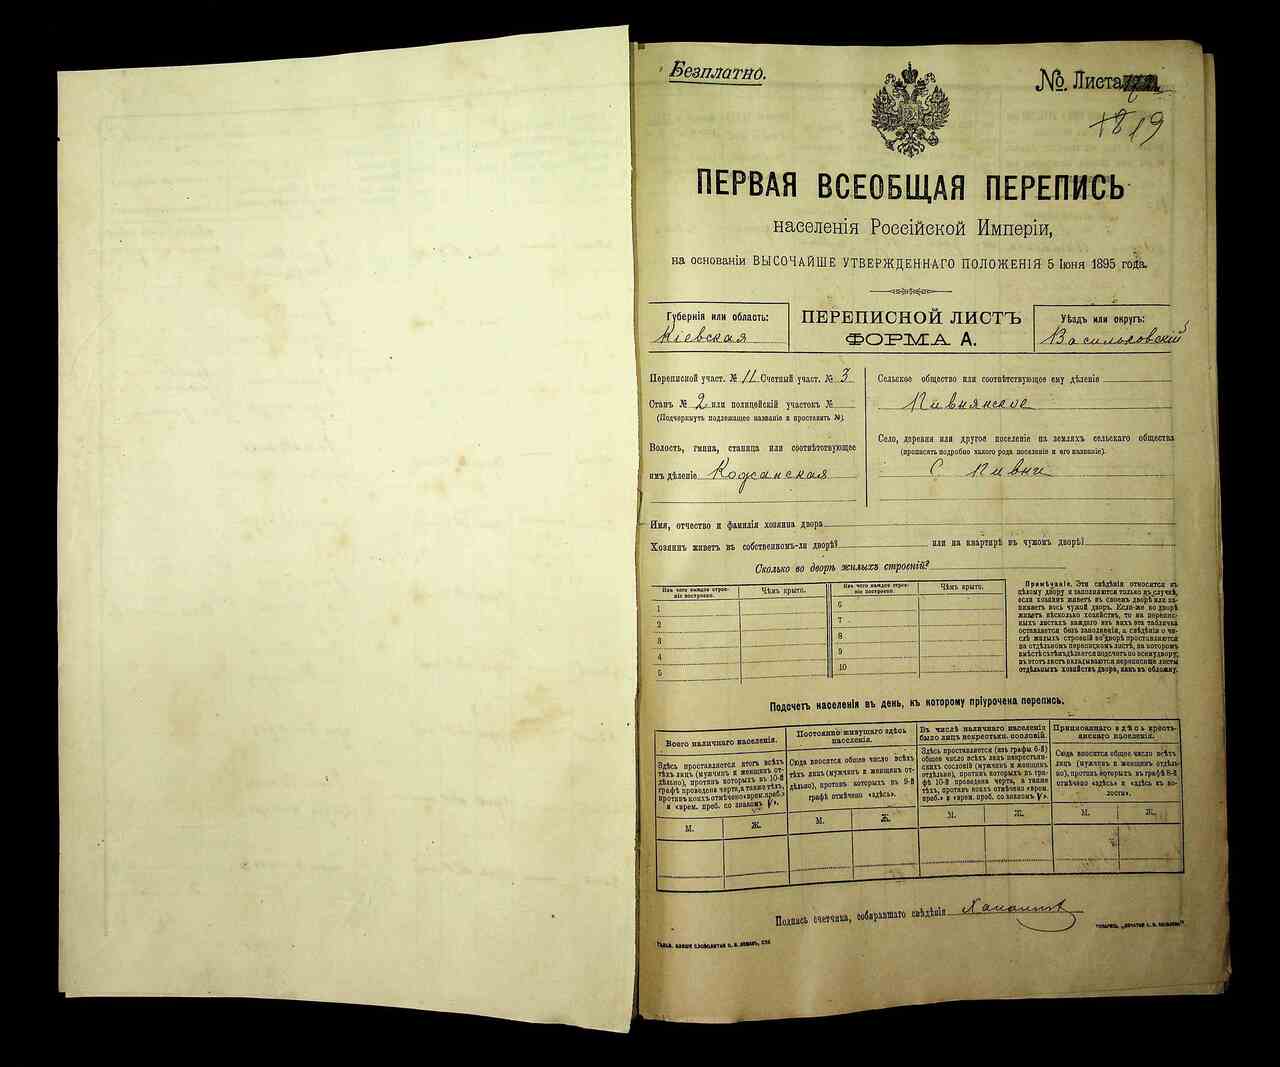 Безплатно.
№. Листа
19
ПЕРВАЯ ВСЕОБЩАЯ ПЕРЕПИСЬ
населенія Россійской Имперіи,
на основаніи ВЫСОЧАЙШЕ УТВЕРЖДЕННАГО ПОЛОЖЕНІЯ 5 Іюня 1895 года.
Губернія или область:
Кіевская
ПЕРЕПИСНОЙ ЛИСТЪ
ФОРМА А.
Уѣздъ или округъ:
Васильковскій
Переписной участ. № 11 Счетный участ. № 3
Станъ № 2 или полицейскій участокъ №
(Подчеркнуть подлежащее названіе и проставить №).
Волость, гмина, станица или соотвѣтствующее
имъ дѣленіе Кожанская
Сельское общество или соотвѣтствующее ему дѣленіе
Пивнянское
Село, деревня или другое поселеніе на земляхъ сельскаго общества
(прописать подробно какого рода поселеніе и его названіе).
С. Пивни
Имя, отчество и фамилія хозяина двора
Хозяинъ живетъ въ собственномъ-ли дворѣ? или на квартирѣ въ чужомъ дворѣ?
Сколько во дворѣ жилыхъ строеній?
Изъ чего каждое строеніе построено.
Чѣмъ крыто.
Изъ чего каждое строеніе построено.
Чѣмъ крыто.
1
2
3
4
5
6
7
8
9
10
Примѣчаніе. Эти свѣдѣнія относятся къ
цѣлому двору и заполняются только въ случаѣ,
если хозяинъ живетъ въ своемъ дворѣ или занимаетъ
весь чужой дворъ. Если-же во дворѣ
живетъ нѣсколько хозяйствъ, то на переписныхъ
листахъ каждаго изъ нихъ эта табличка
оставляется безъ заполненія, а свѣдѣнія о числѣ
жилыхъ строеній во дворѣ проставляются
на отдѣльномъ переписномъ листѣ, на которомъ
вмѣстѣ съ тѣмъ дѣлается подсчетъ по всему двору;
въ этотъ листъ вкладываются переписные листы
отдѣльныхъ хозяйствъ двора, какъ въ обложку.
Подсчетъ населенія въ день, къ которому пріурочена перепись.
Всего наличнаго населенія.
Постоянно живущаго здѣсь
населенія.
Въ числѣ наличнаго населенія
было лицъ некрестьян. сословій.
Приписаннаго здѣсь крестьянскаго
населенія.
Здѣсь проставляется итогъ всѣхъ
тѣхъ лицъ (мужчинъ и женщинъ отдѣльно),
противъ которыхъ въ 10-й
графѣ проведена черта, а также тѣхъ,
противъ коихъ отмѣчено «врем. проб.»
и «врем. проб. со знакомъ V».
Сюда вносится общее число всѣхъ
тѣхъ лицъ (мужчинъ и женщинъ отдѣльно),
противъ которыхъ въ 9-й
графѣ отмѣчено «здѣсь».
Здѣсь проставляется (изъ графы 6-й)
общее число всѣхъ лицъ некрестьянскихъ
сословій (мужчинъ и женщинъ
отдѣльно), противъ которыхъ въ графѣ
10-й проведена черта, а также
тѣхъ, противъ коихъ отмѣчено «врем.
проб.» и «врем. проб. со знакомъ V».
Сюда вносится общее число всѣхъ
лицъ (мужчинъ и женщинъ отдѣльно),
противъ которыхъ въ графѣ 8-й
отмѣчено «здѣсь» и «здѣсь въ волости».
М. Ж. М. Ж. М. Ж. М. Ж.
Подпись счетчика, собиравшаго свѣдѣнія